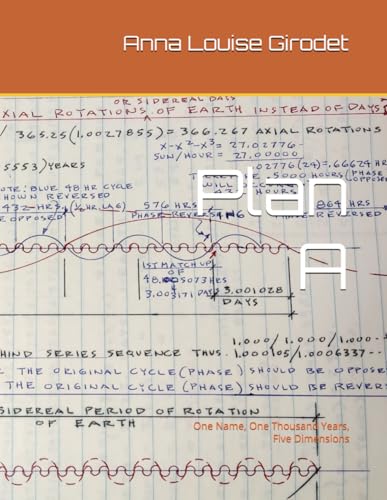 Anna Louise Girodet
OR SIDEREAL DAYS
AXIAL ROTATIONS OF EARTH INSTEAD OF DAYS
365.25(1.0027855) = 366.267 AXIAL ROTATIONS
X-X²-X³= 27.02776
SUN/HOUR = 27.00000
5553) YEARS
.02776(24)=.66624 HR
.5000 HOURS (PHASE
OPPOSE
NOTE: BLUE 48 HR CYCLE
WILL
SHOWN REVERSED
HOURS
Plan
A
432 HRS (½HR. LAG)
576 HRS
864 HRS
E OPPOSED
PHASE REVERSING
PHASE REVERSED
1ST MATCH UP
OF
48.05073 HRS
3.003171 DAYS
3.001028
DAYS
1.000/1.000/1.000
HIND SERIES SEQUENCE THUS. 1.000105/1.0006337--
THE ORIGINAL CYCLE (PHASE) SHOULD BE OPPOSE
THE ORIGINAL CYCLE (PHASE) SHOULD BE REVER
SIDEREAL PERIOD OF ROTATION
OF EARTH
One Name, One Thousand Years,
Five Dimensions